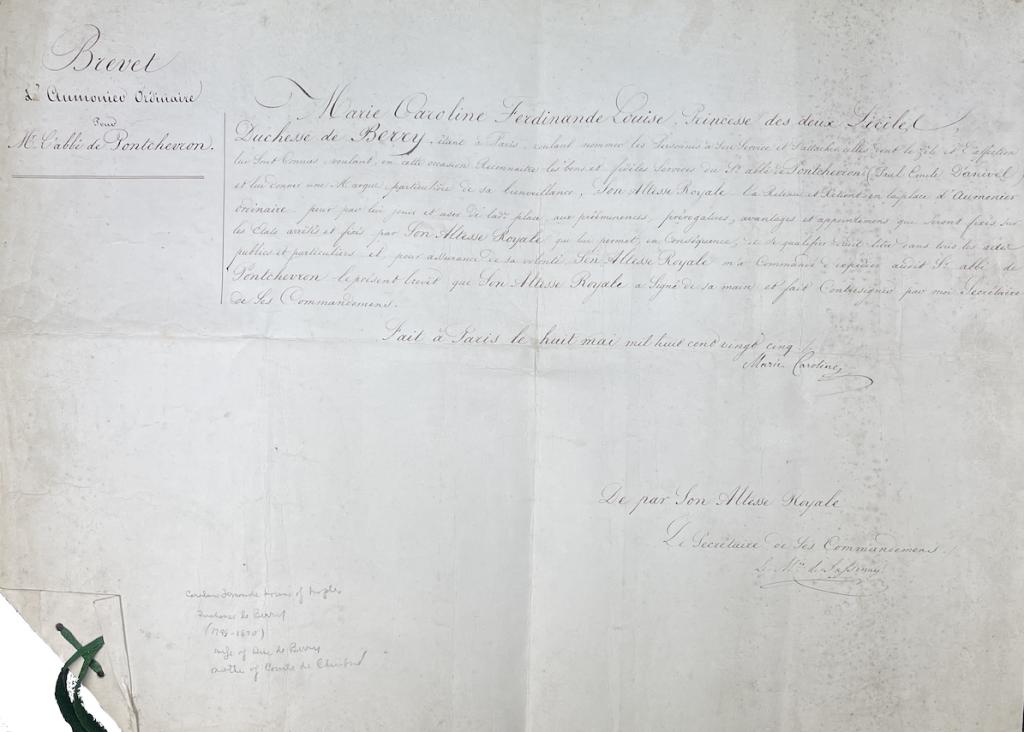 Brevet
D'Aumonier Ordinaire
Pour
Mr. L'abbé de Pontchevron.
Marie Caroline Ferdinande Louise, Princesse des deux Siciles,
Duchesse de Berry, étant à Paris, voulant nommer les Personnes à Son Service et S'attacher celles dont le Zèle et L'affection
lui Sont Connus, voulant, en cette occasion Reconnaitre les bons et fidèles Services du Sr. abbé de Pontchevron (Paul Emile
et lui donner une Marque particulière de sa bienveillance, Son Altesse Royale L'a Retenu et Retient en la place d'Aumonier
ordinaire pour par lui jouir et user de lad. place, aux prééminences, prérogatives, avantages et appointemens que Seront fixés sur
les Etats arrêtés et fixés par Son Altesse Royale qui lui permet, en Conséquence, de Se qualifier dudit titre dans tous les actes
publics et particuliers et pour assurance de sa volonté Son Altesse Royale m'a Commandé d'expédier audit Sr. abbé de
Pontchevron le présent brevet que Son Altesse Royale a Signé de sa main et fait Contresigner par moi Secrétaire
de Ses Commandemens.
Fait à Paris le huit mai mil huit cent vingt cinq.
Marie Caroline
De par Son Altesse Royale
Le Secrétaire de Ses Commandemens
Le Mis. de
Caroline Ferdinande Louise of Naples
Duchesse de Berry
(1798-1870)
wife of Duc de Berry
mother of Comte de Chambord